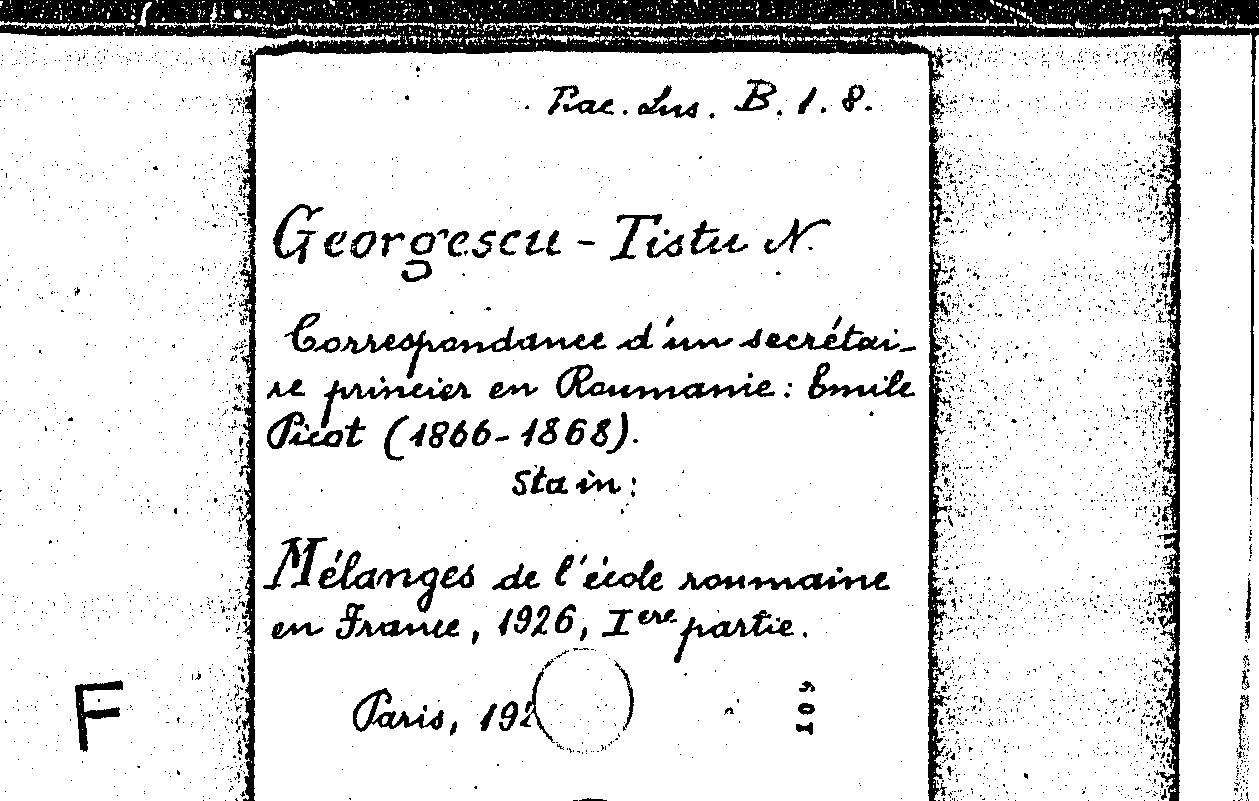 Rac. Lus. B. 1. 8.
Georgescu - Tistu N.
Correspondance d'un secrétai-
re princier en Roumanie: Emile
Picot (1866-1868).
Sta in:
Mélanges de l'école roumaine
en France, 1926, Iere partie.
F
Paris, 192
109